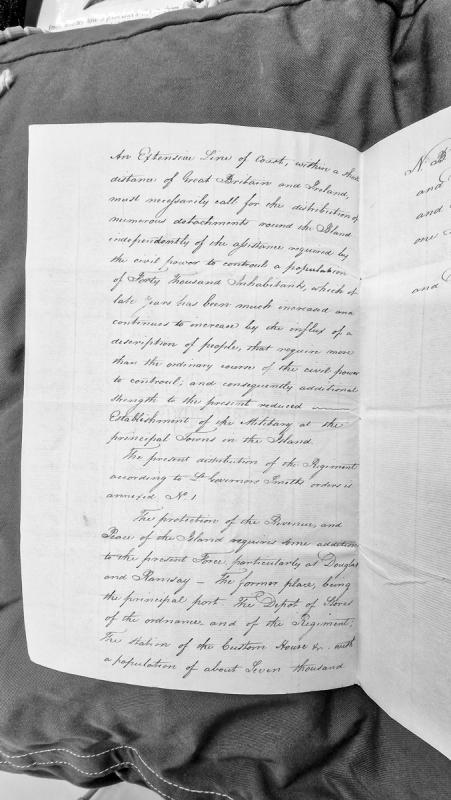 An Extensive Line of Coast, within a short
distance of Great Britain and Ireland,
must necessarily call for the distribution of
numerous detachments round the Island
independently of the assistance required by
the civil power to controul a population
of Forty Thousand Inhabitants, which of
late Years has been much increased and
continues to increase by the influx of a
description of people, that require more
than the ordinary course of the civil power
to controul; and consequently additional
strength to the present reduced
Establishment of the Military at the
principal Towns in the Island.
The present distribution of the Regiment
according to Lt Governors Smelts orders is
annexed. No. 1
The protection of the Revenue, and
Peace of the Island requires some addition
to the present Force, particularly at Douglas
and Ramsay — The former place, being
the principal port. The Depot of Stores
of the ordnance and of the Regiment;
The station of the Custom House &c. with
a population of about Seven thousand
N. B
and
and
one
and